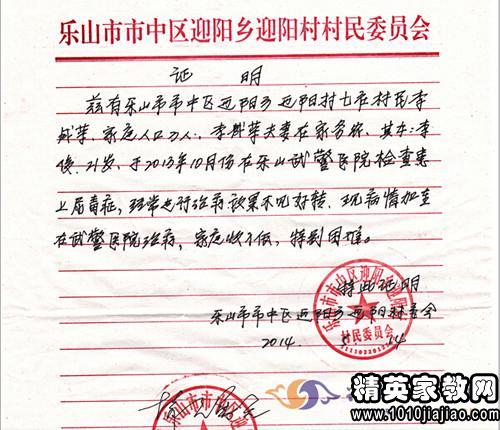 乐山市市中区迎阳乡迎阳村村民委员会
证 明
兹有乐山市市中区迎阳乡迎阳村七组村民李
成英,家庭人口3人,李成英夫妻在家务农。其女:李
俊,21岁,于2013年10月份在乐山武警医院检查患
上尿毒症,经常进行治疗效果不见好转。现病情加重
在武警医院治疗,家庭收入低,特别困难。
特此证明
乐山市市中区迎阳乡迎阳村委会
2014 14
乐山市市中区迎阳
村民委员会
乐山市市中区
精英家教网
www.1010jiajiao.com